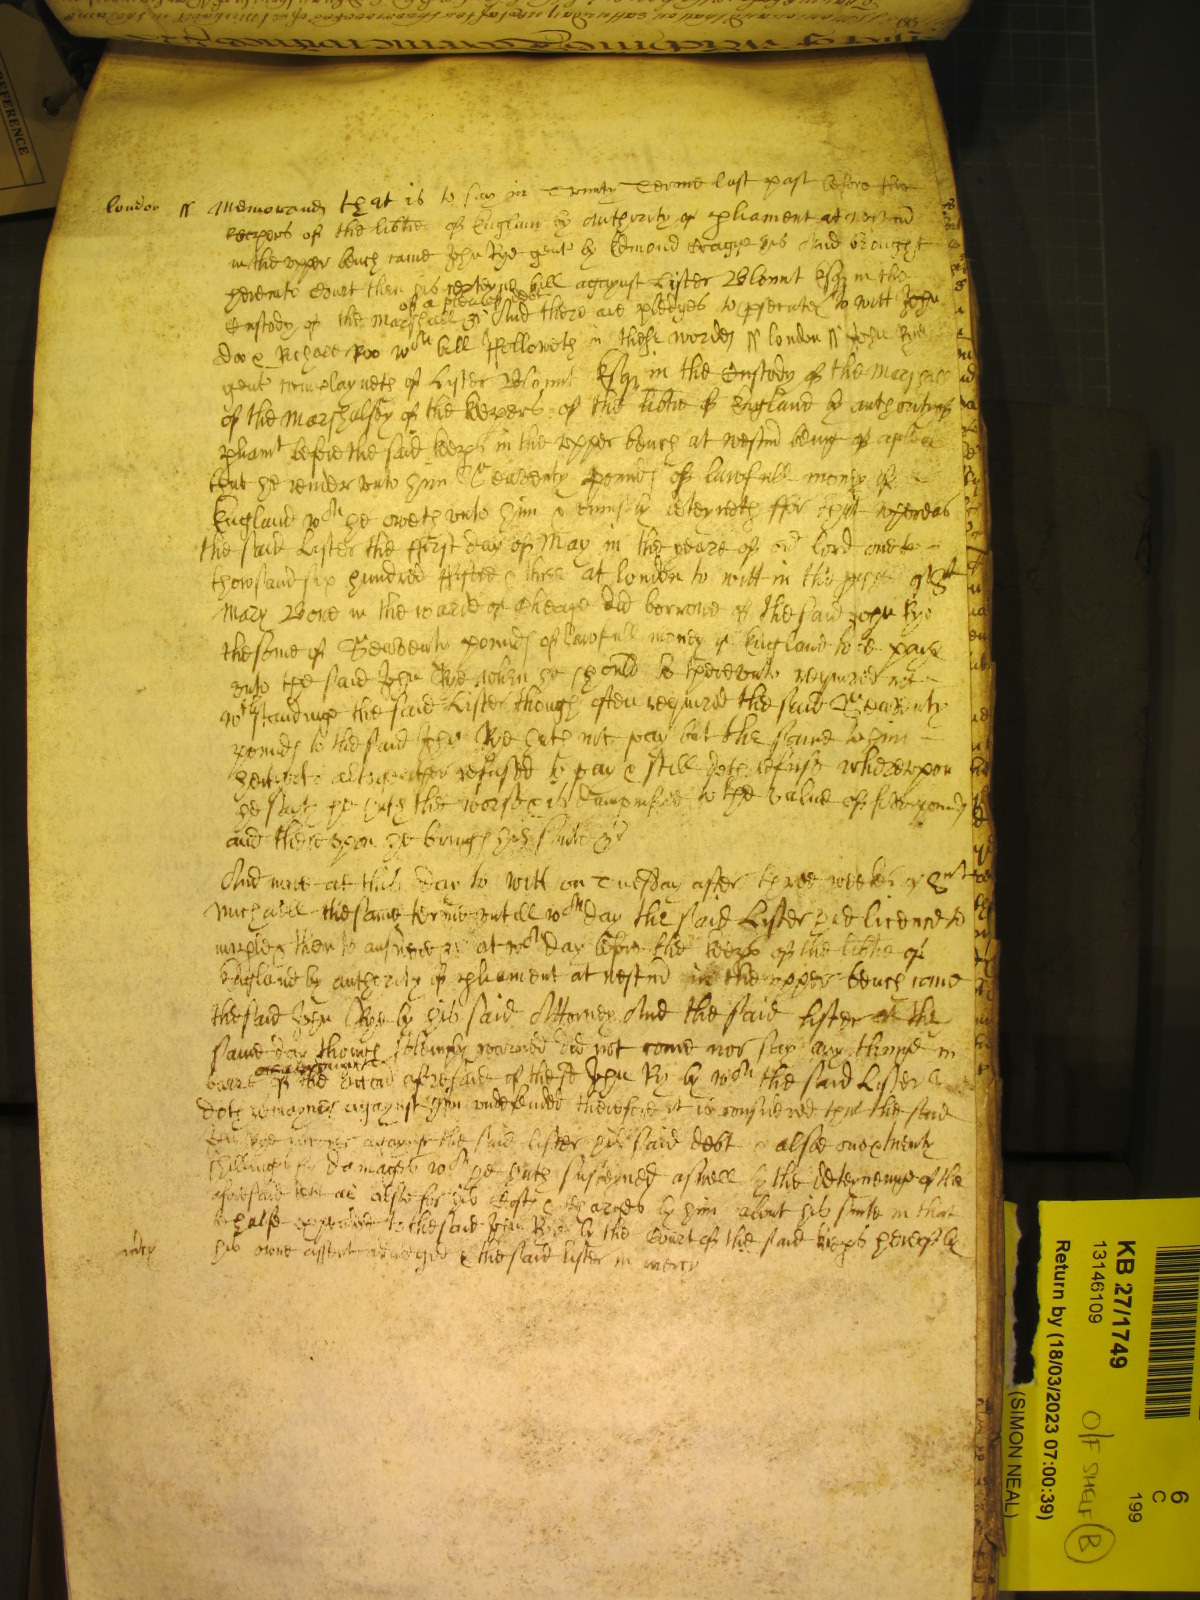 REFERENCE
london ss Memorand that is to say in Trinity Terme last past before the
keepers of the libtie of England by authority of pliament at Westm
in the upper bench came John Rye gent by Edmond his Aturnd brought
hereinto Court then his certeyne bill against Lister Blount Esq in the
of a plea of debt
Custody of the Marshall &c And there are pledges to psecute to witt John
doo & Richard Roo wch bill followeth in these words ss london ss John Rye
gent complayneth of Lister Blount Esq in the Custody of the Marshall
of the Marshalsey of the keepers of the libtie of England by authority of
pliamt before the said keeps in the upper bench at Westm being of a plea
that he render unto him Seaventy pounds of lawfull money of
England wch he oweth unto him & uniustly deteyneth ffor that whereas
the said Lister the ffirst day of May in the yeare of or lord one
thowsand six hundred ffiftie & three at london to witt in the pish of St
Mary Bowe in the warde of Cheape did borrowe of the said John Rye
the some of Seaventy pounds of lawfull money of England to be payd
unto the said John Rye when he should be thereunto required not
wthstandinge the said Lister though often required the said Seaventy
pounds to the said John Rye hath not payd but the same to him
hitherto altogeather refused to pay & still doth refuse whereupon
he saith he hath the worse & is dampnified to the value of pounds
and thereupon he brings his suite &c
And nowe at this day to witt on Tuesday after three weekes of St
Michaell the same terme untill wch day the said Lister had licence to
imparle & then to answere &c at wch day before the keeps of the libtie of
England by authority of pliament at Westm in the upper bench came
the said John Rye by his said Attorney And the said Lister at the
same day though solemnly required did not come nor say any thinge in
barre of the accon aforesaid of the sd John Rye by wch the said Lister
doth remayne against him undefended therefore it is considered that the said
John Rye recover against the said Lister his said debt & alsoe one & twenty
shillings for damages wch he hath susteyned aswell by the deteyneinge of the
aforesaid debt as alsoe for his Costs & charges by him about his suite in that
behalfe expended to the said John Rye by the Court of the said keeps here of
his owne assent adiudged & the said Lister in mercy
mcy
KB 27/1749
13146109
Return by (18/03/2023 07:00:39)
(SIMON NEAL)
O/F SHELF B
6
C
199